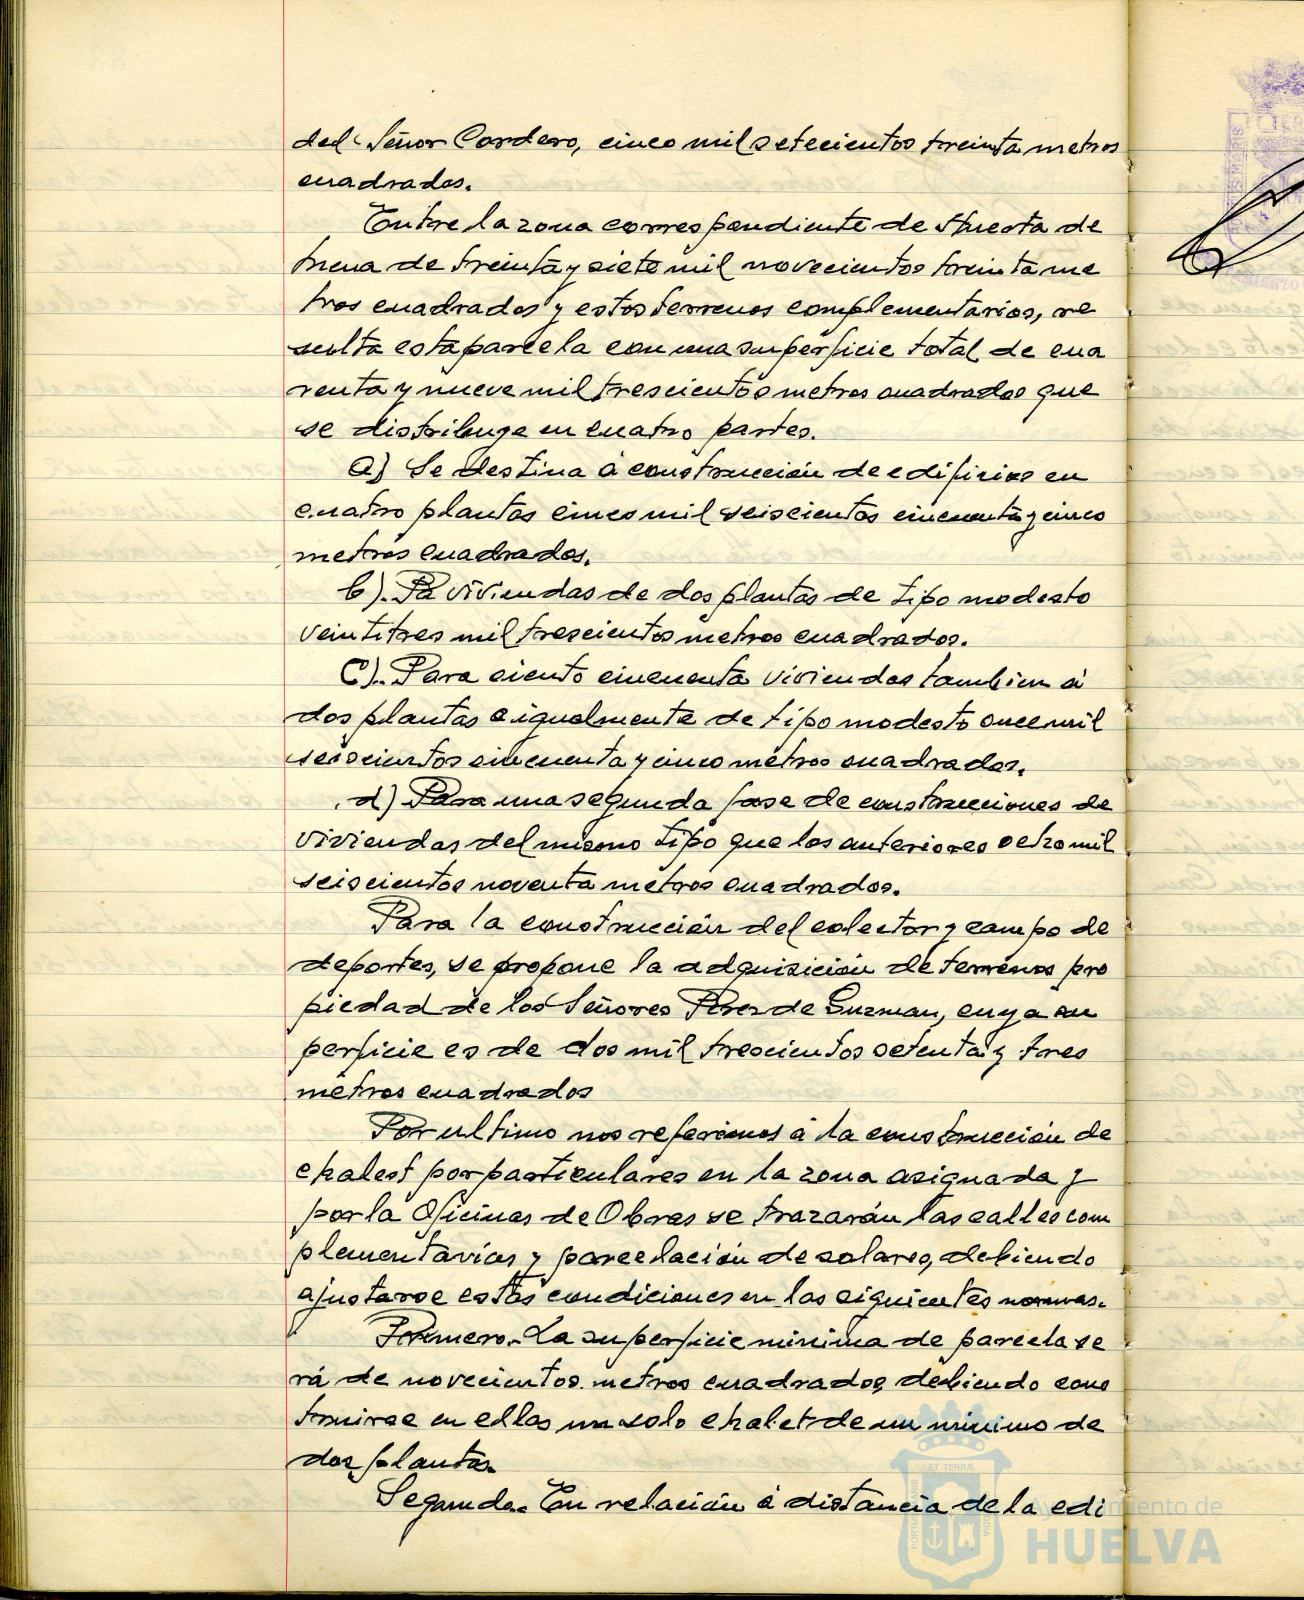 del Señor Cordero, cinco mil setecientos treinta metros
cuadrados.
Entre la zona correspondiente de Huerta de
Mena de treinta y siete mil novecientos treinta me
tros cuadrados y estos terrenos complementarios, re
sulta esta parcela con una superficie total de cua
renta y nueve mil trescientos metros cuadrados que
se distribuye en cuatro partes.
a) Se destina á construcción de edificios en
cuatro plantas cinco mil seiscientos cincuenta y cinco
metros cuadrados.
b). Pa viviendas de dos plantas de tipo modesto
veintitres mil trescientos metros cuadrados.
C). Para ciento cincuenta viviendas tambien á
dos plantas e igualmente de tipo modesto once mil
seiscientos cincuenta y cinco metros cuadrados.
d) Para una segunda fase de construcciones de
viviendas del mismo tipo que los anteriores ocho mil
seiscientos noventa metros cuadrados.
Para la construcción del colector y campo de
deportes, se propone la adquisición de terrenos pro
piedad de los Señores Perez de Guzman, cuya su
perficie es de dos mil trescientos setenta y tres
metros cuadrados
Por ultimo nos referimos á la construcción de
chalest por particulares en la zona asignada y
por la Oficinas de Obras se trazarán las calles com
plementarias y parcelación de solares, debiendo
ajustarse estas condiciones en las siguientes normas.
Primero.- La superficie minima de parcela se
rá de novecientos metros cuadrados, debiendo cons
truirse en ellas un solo chalet de un minimo de
dos plantas.
Segunda.- En relación á distancia de la edi
Ayuntamiento de
HUELVA